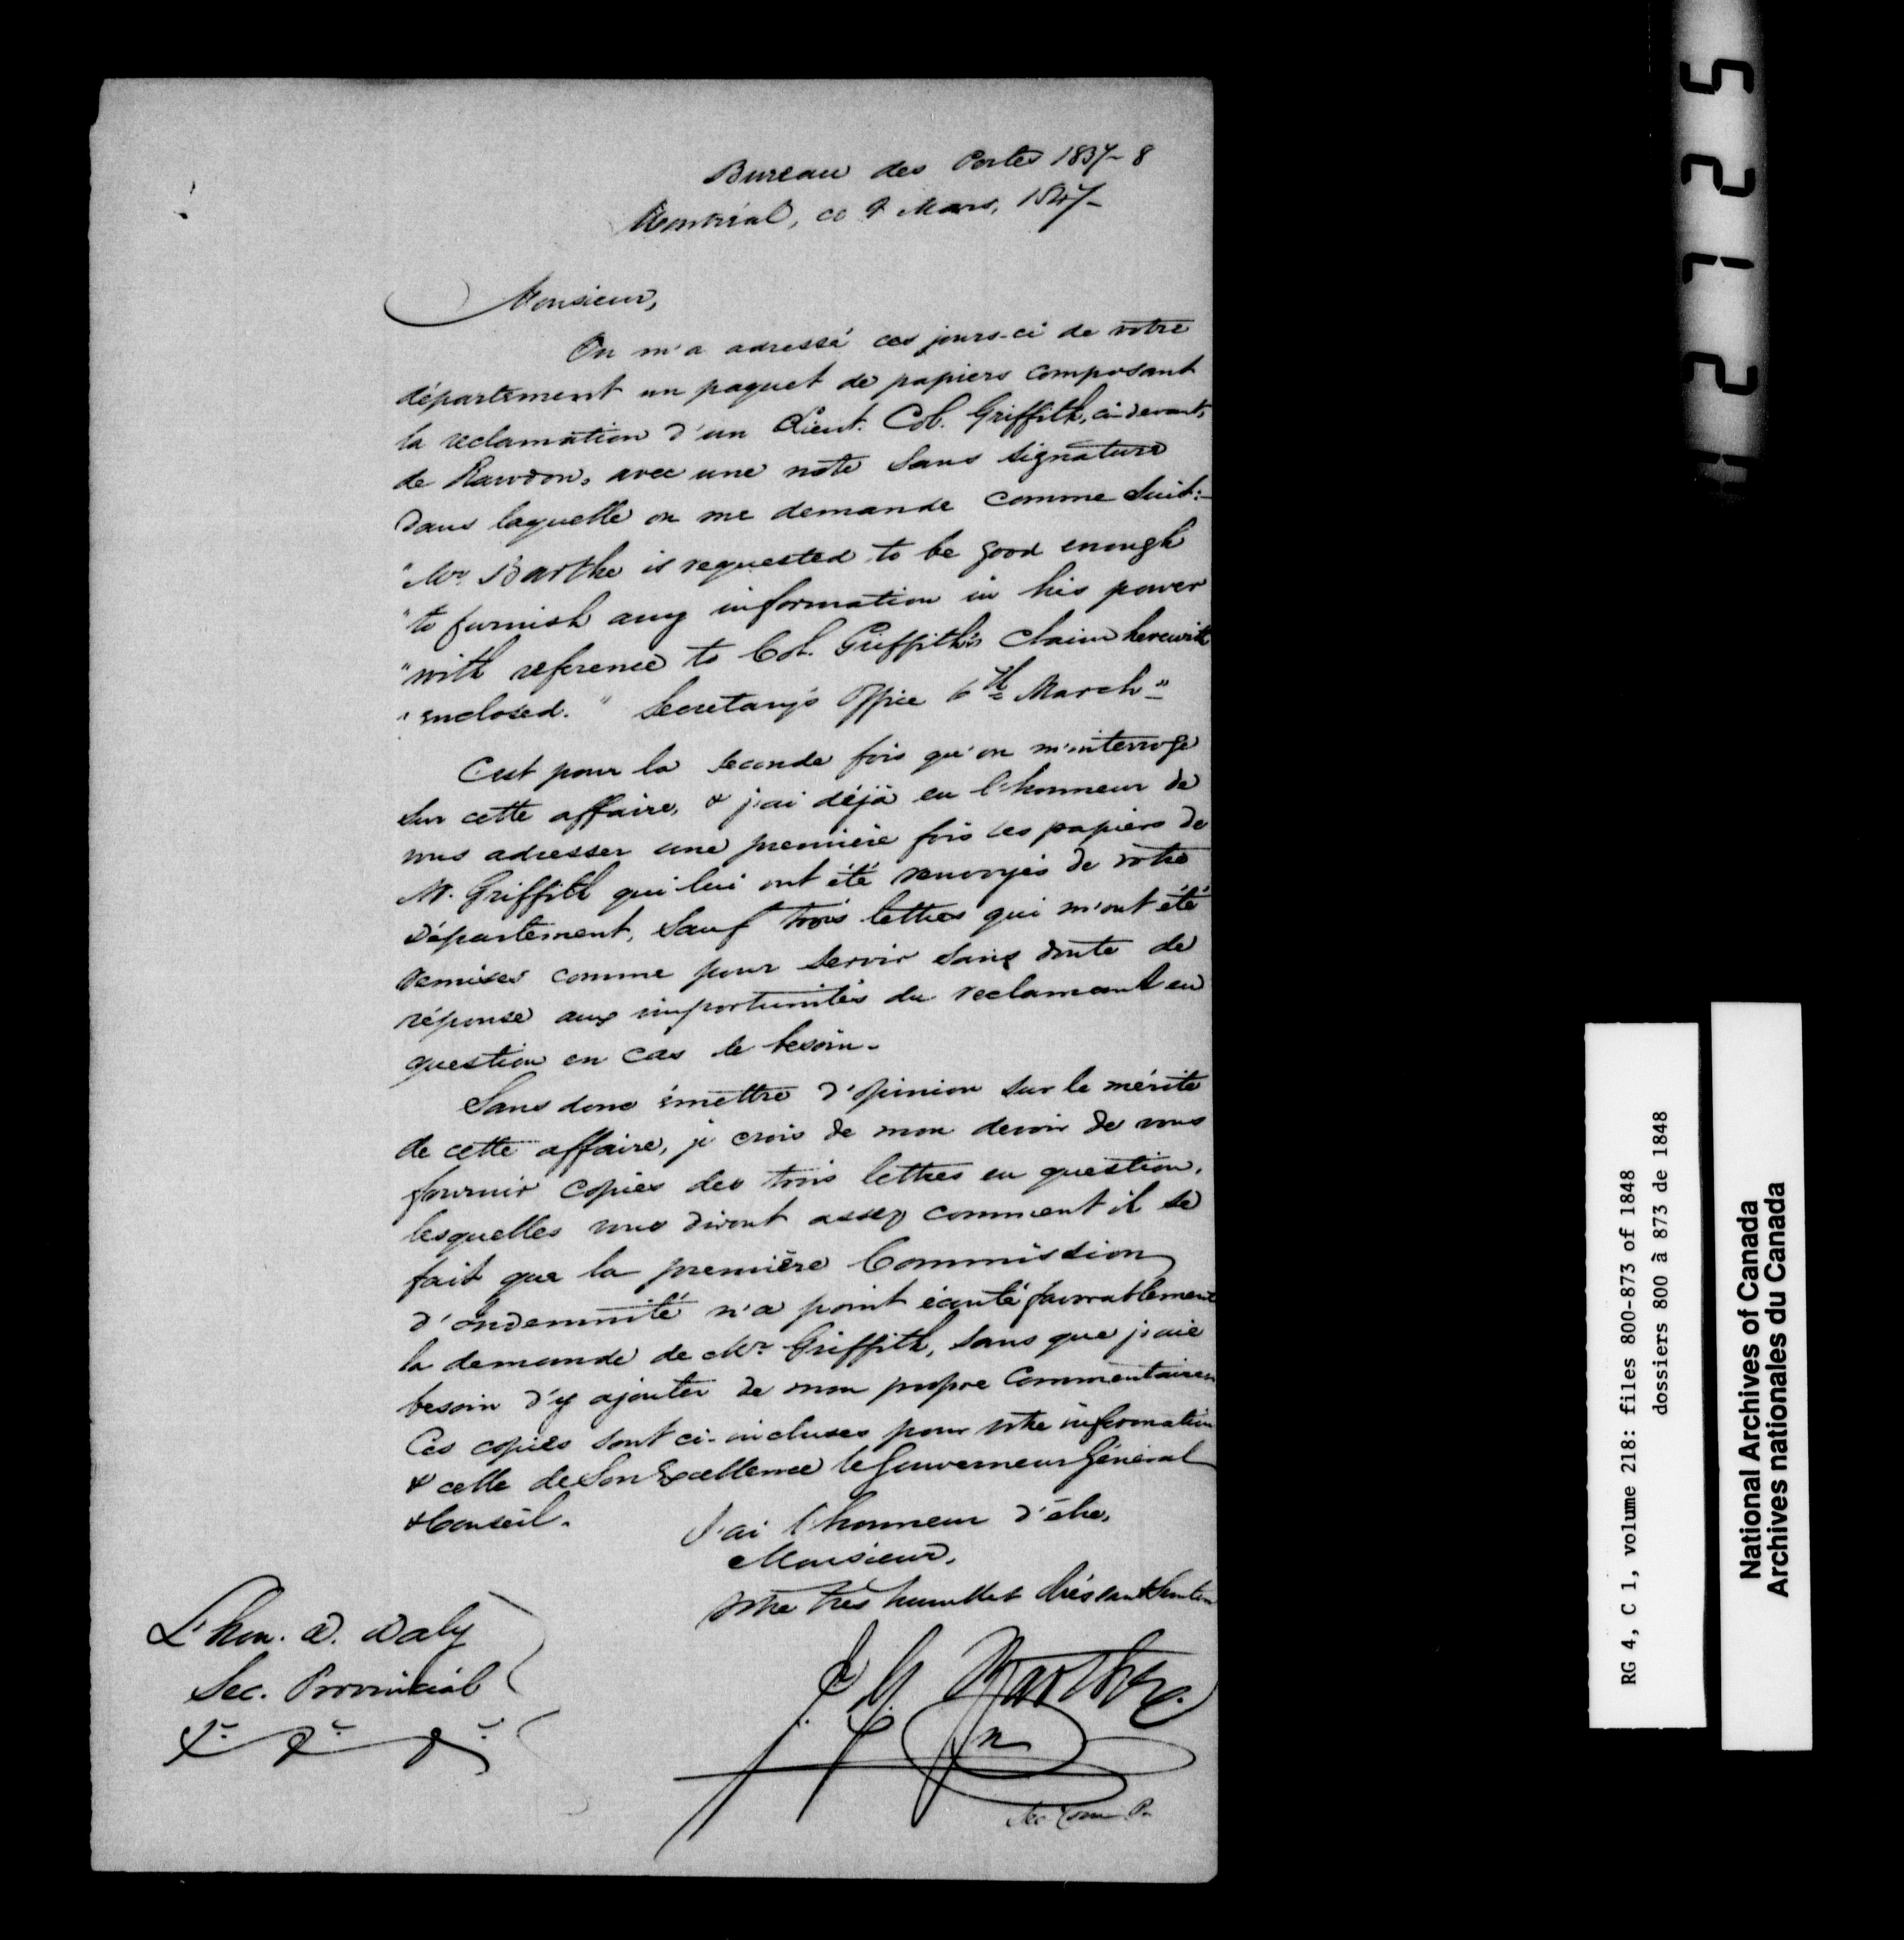 Bureau des Pertes 1837-8
Montréal, ce 9 Mars, 1847-
Monsieur,
On m'a adressé ces jours-ci de votre
département un paquet de papiers composant
la reclamation d'un Lieut. Col. Griffith, ci-devant,
de Rawdon, avec une note sans signature
dans laquelle on me demande comme suit:-
"Mr. Barthe is requested to be good enough
"to furnish any information in his power
"with reference to Col. Griffith's claim herewith
"enclosed." Secretary's Office 6th March"
C'est pour la seconde fois qu'on m'interroge
sur cette affaire, & j'ai déjà eu l'honneur de
vous adresser une première fois les papiers de
M. Griffith qui lui ont été renvoyés de votre
Département, sauf trois lettres qui m'ont été
remises comme pour servir sans doute de
réponse aux importunités du reclamant en
question en cas de besoin.
Sans donc émettre d'opinion sur le mérite
de cette affaire, je crois de mon devoir de vous
fournir copies des trois lettres en question,
lesquelles vous diront assez comment il se
fait que la première Commission
d'Indemnité n'a point écouté favorablement
la demande de Mr. Griffith, sans que j'aie
besoin d'y ajouter de mon propre Commentaires
Ces copies sont ci-incluses pour votre information
& celle de Son Excellence le Gouverneur Général
& Conseil.
J'ai l'honneur d'être,
Monsieur,
Votre très humble & obéissant Serviteur
J. G. Barthe
Sec. Com. P.
L'hon. D. Daly
Sec. Provincial
&c. &c. &c.
12725
RG 4, C 1, volume 218: files 800-873 of 1848
dossiers 800 à 873 de 1848
National Archives of Canada
Archives nationales du Canada